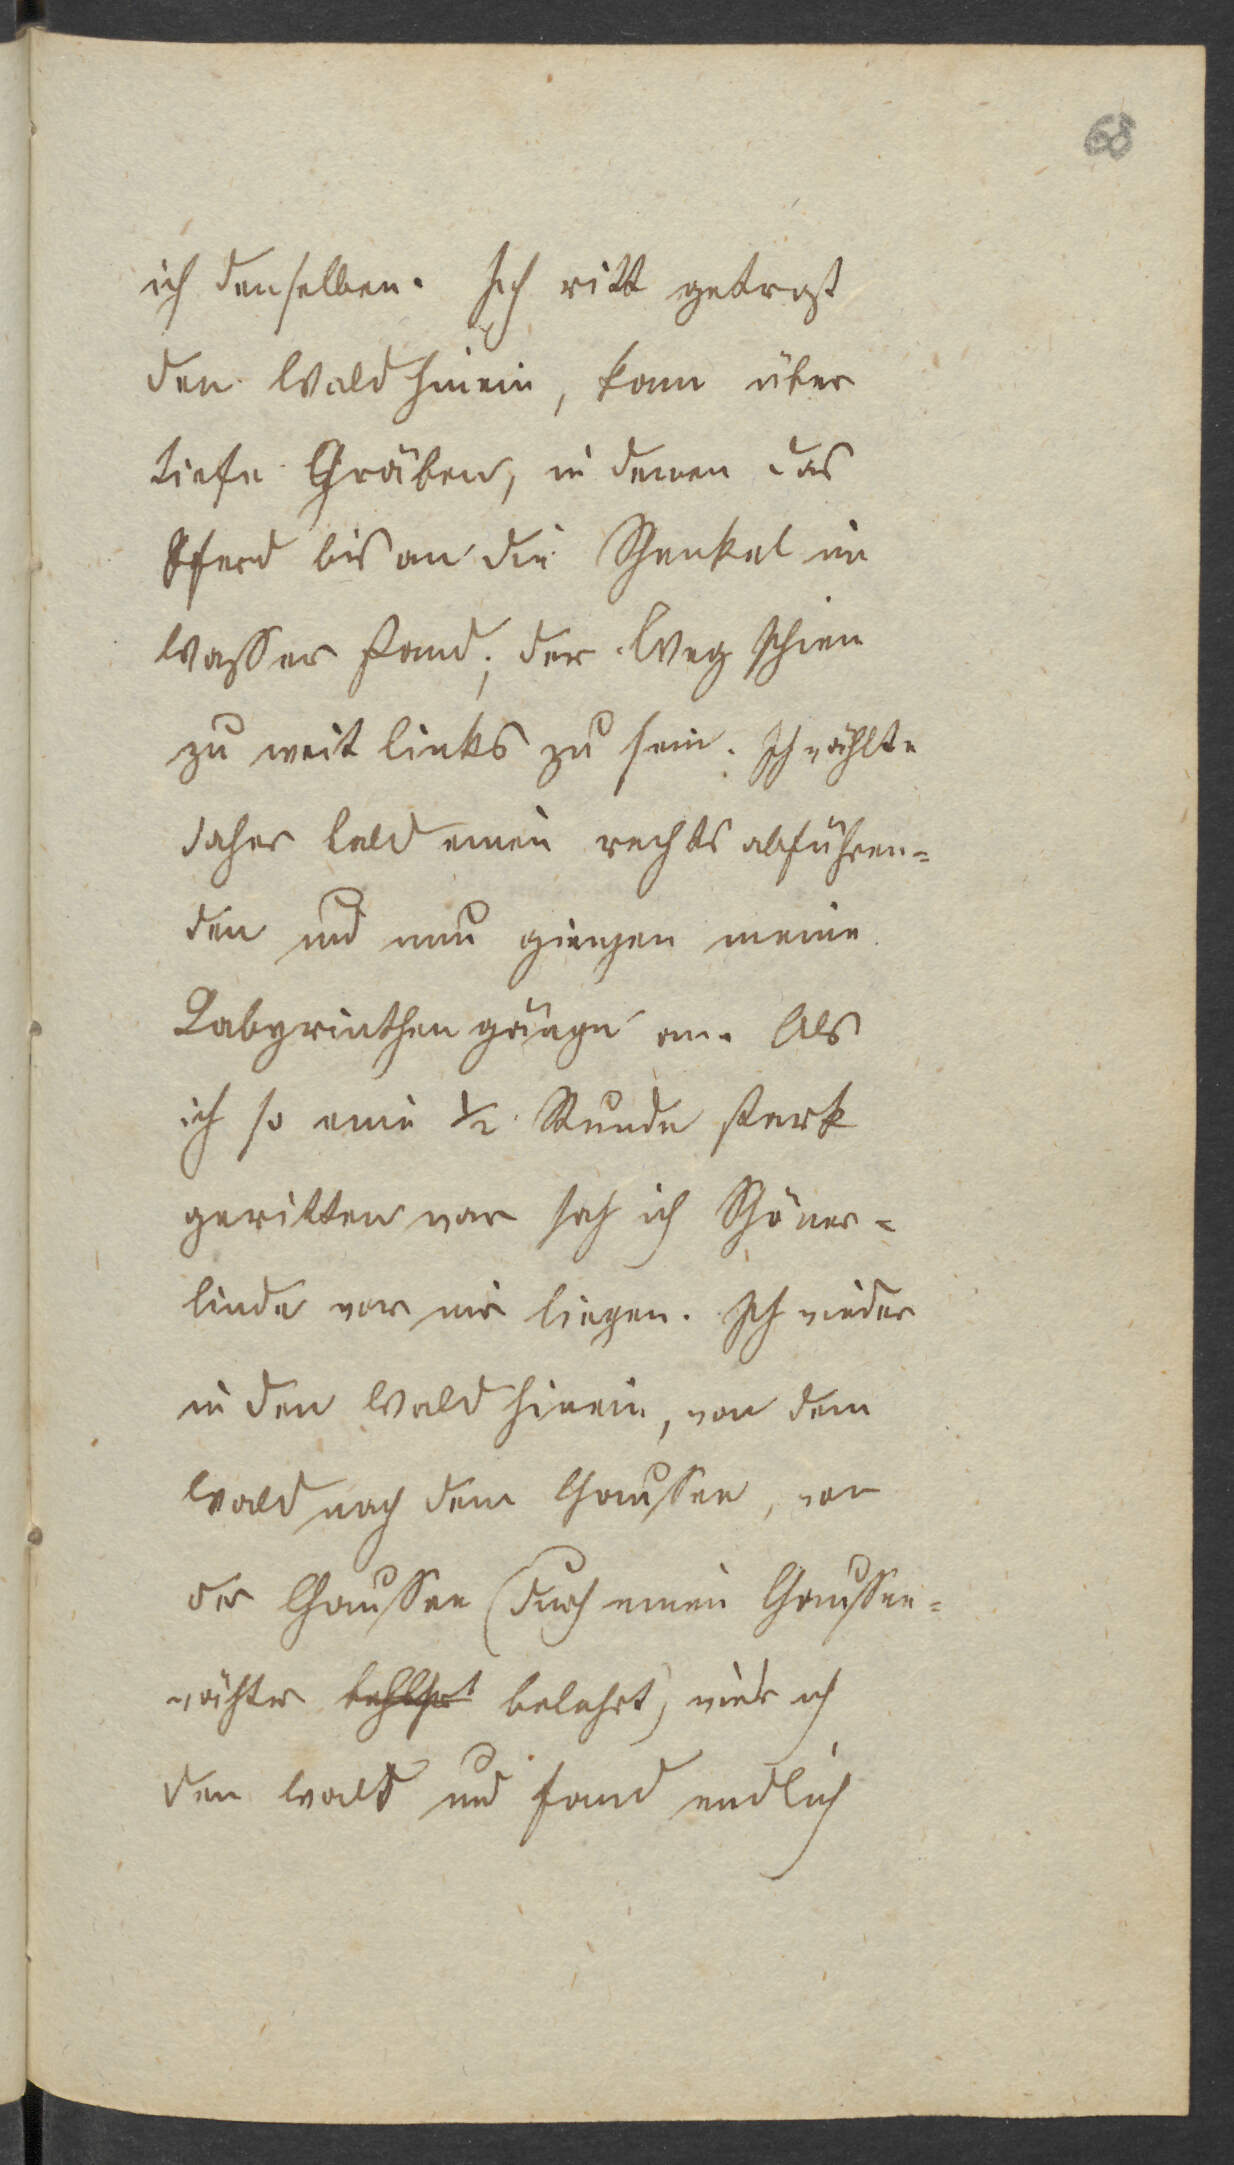 68
ich denselben. Ich ritt getrost
den Wald hinein, kam über
tiefe Gräben, in denen das
Pferd bis an die Schenkel im
Wasser stand; der Weg schien
zu weit links zu sein. Ich wählte
daher bald einen rechts abführen=
den und nun giengen meine
Labyrinthengänge an. Als
ich so eine ½ Stunde stark
geritten war sah ich Schöner=
linde vor mir liegen. Ich wieder
in den Wald hinein, von dem
Wald nach dem Chaussee, von
der Chaussee (durch einen Chaussee=
wächter belehrt) wieder ich
den Wald und fand endlich